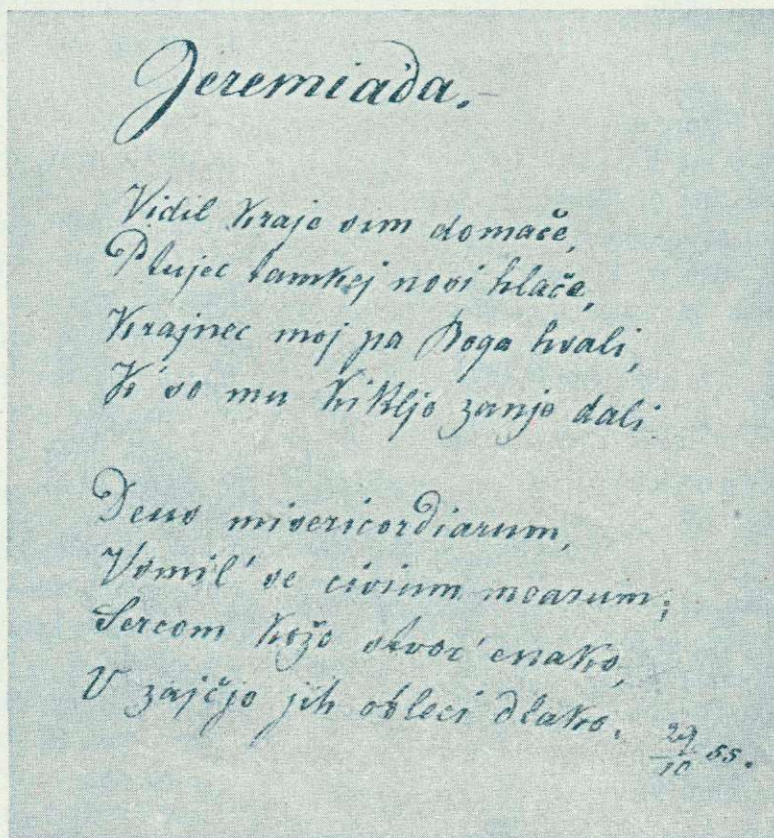 Jeremiada.
Vidil kraje sim domače,
Ptujec tamkej nosi hlače,
Krajnec moj pa Boga hvali,
K' so mu kikljo zanjo dali
Deus misericordiarum,
Vsmil' se civium mearum;
Sercom kožo stvor' enako,
V zajčjo jih obleci dlako.
29/10 55.